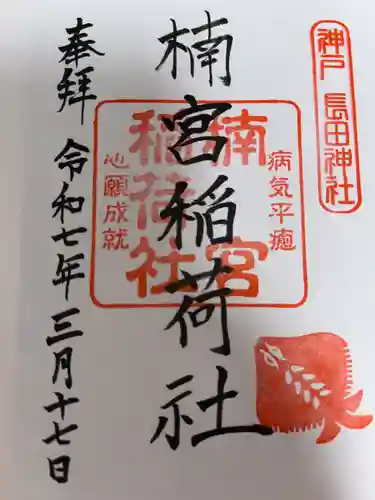 神戸 長田神社
楠宮稲荷社
病気平癒
楠宮
稲荷社
心願成就
奉拝
令和七年三月十七日